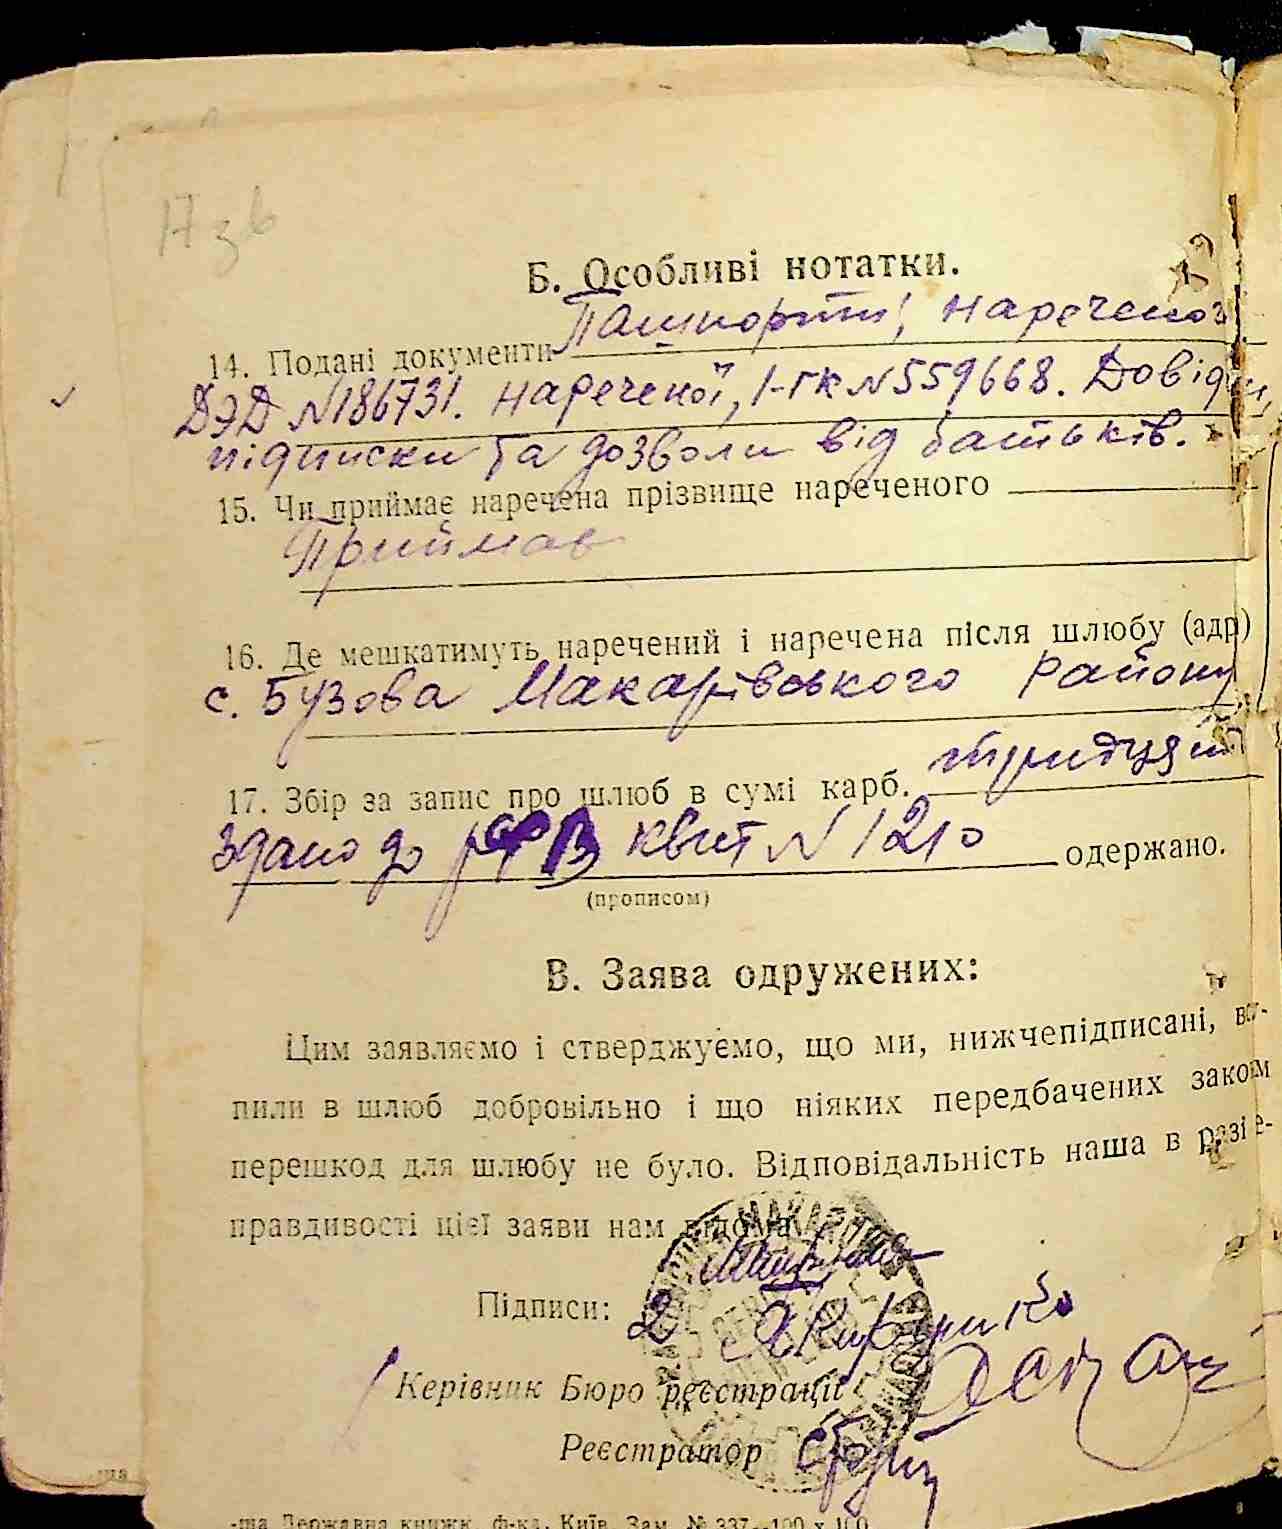 17 зв
Б. Особливі нотатки.
14. Подані документи Пашпорти, нареченої
ДЭД №186731. нареченої, 1-ГК №559668. Довідки,
підписки та дозволи від батьків.
15. Чи приймає наречена прізвище нареченого
Приймає
16. Де мешкатимуть наречений і наречена після шлюбу (адр)
с. Бузова Макарівського Району
17. Збір за запис про шлюб в сумі карб. тридцять
Здано до РФВ квит № 1210 одержано.
(прописом)
В. Заява одружених:
Цим заявляємо і стверджуємо, що ми, нижчепідписані, вст-
пили в шлюб добровільно і що ніяких передбачених законом
перешкод для шлюбу не було. Відповідальність наша в разі не-
правдивості цієї заяви нам відома.
Підписи:
2
Керівник Бюро реєстрації
Реєстратор
-ша Державна книжк. ф-ка, Київ. Зам. № 337—100 х 100